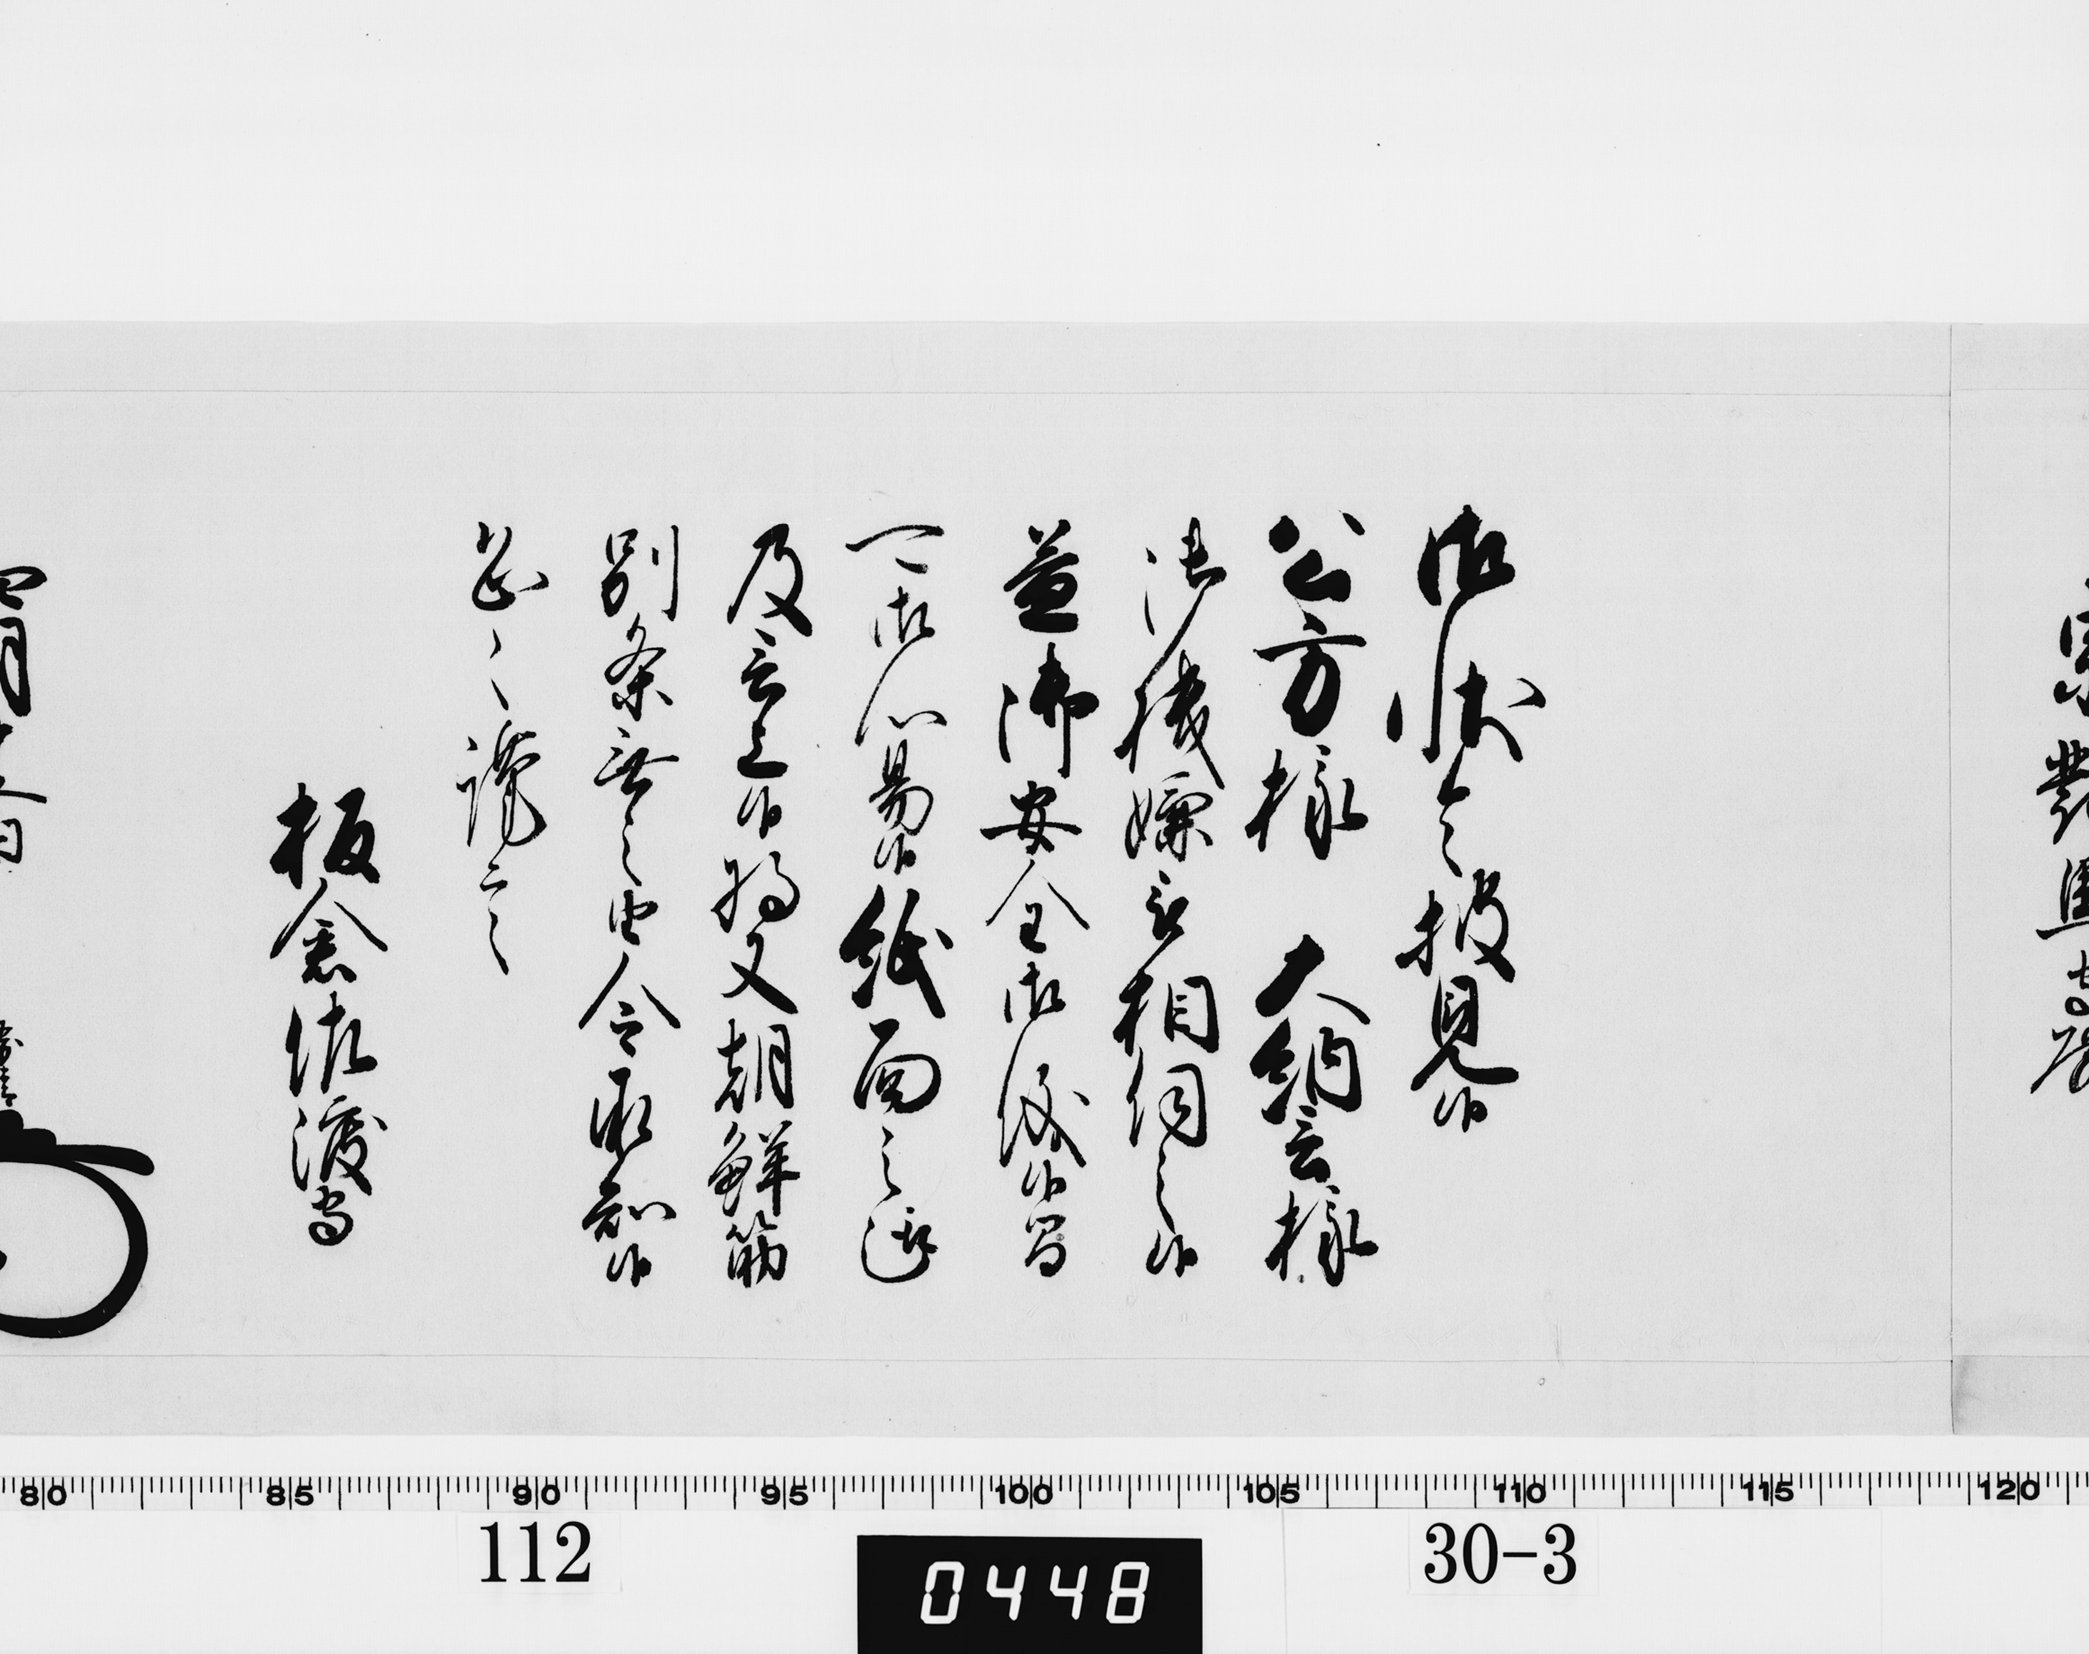 宗對馬守殿
御状令披見候
公方様 大納言様
御機嫌被相伺之候
益御安全御儀候間
可御心易候紙面之通
及言上候將又朝鮮筋
別条無之由令承知候
恐々謹言
板倉佐渡守
四月十五日
80 85 90 95 100 105 110 115 120
112
0448
30-3